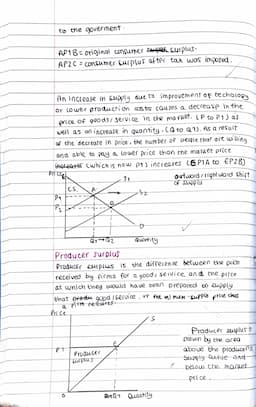 to the goverment.
AP1B = original consumer surplus.
AP2C = consumer surplus after tax was imposed.
An increase in supply due to improvement of techology
or lower production costs causes a decrease in the
price of goods/service in the market. (P to P1) as
well as an increase in quantity. (Q to Q1). As a result
of the decrease in price, the number of people that are willing
and able to pay a lower price than the market price
increases (which is now P1) increases
outward/rightward shift
of supply
Price
C.S.
A
S1
S2
P1
P2
B
D
0
Q1→Q2
Quantity
Producer surplus
Producer surplus is the difference between the price
received by firms for a good/service, and the price
at which they would have been prepared to supply
that good/service.
Price
S
P1
Producer
surplus
0
Q1
Quantity
Producer surplus is
shown by the area
above the producer's
supply curve and
below the market
price.